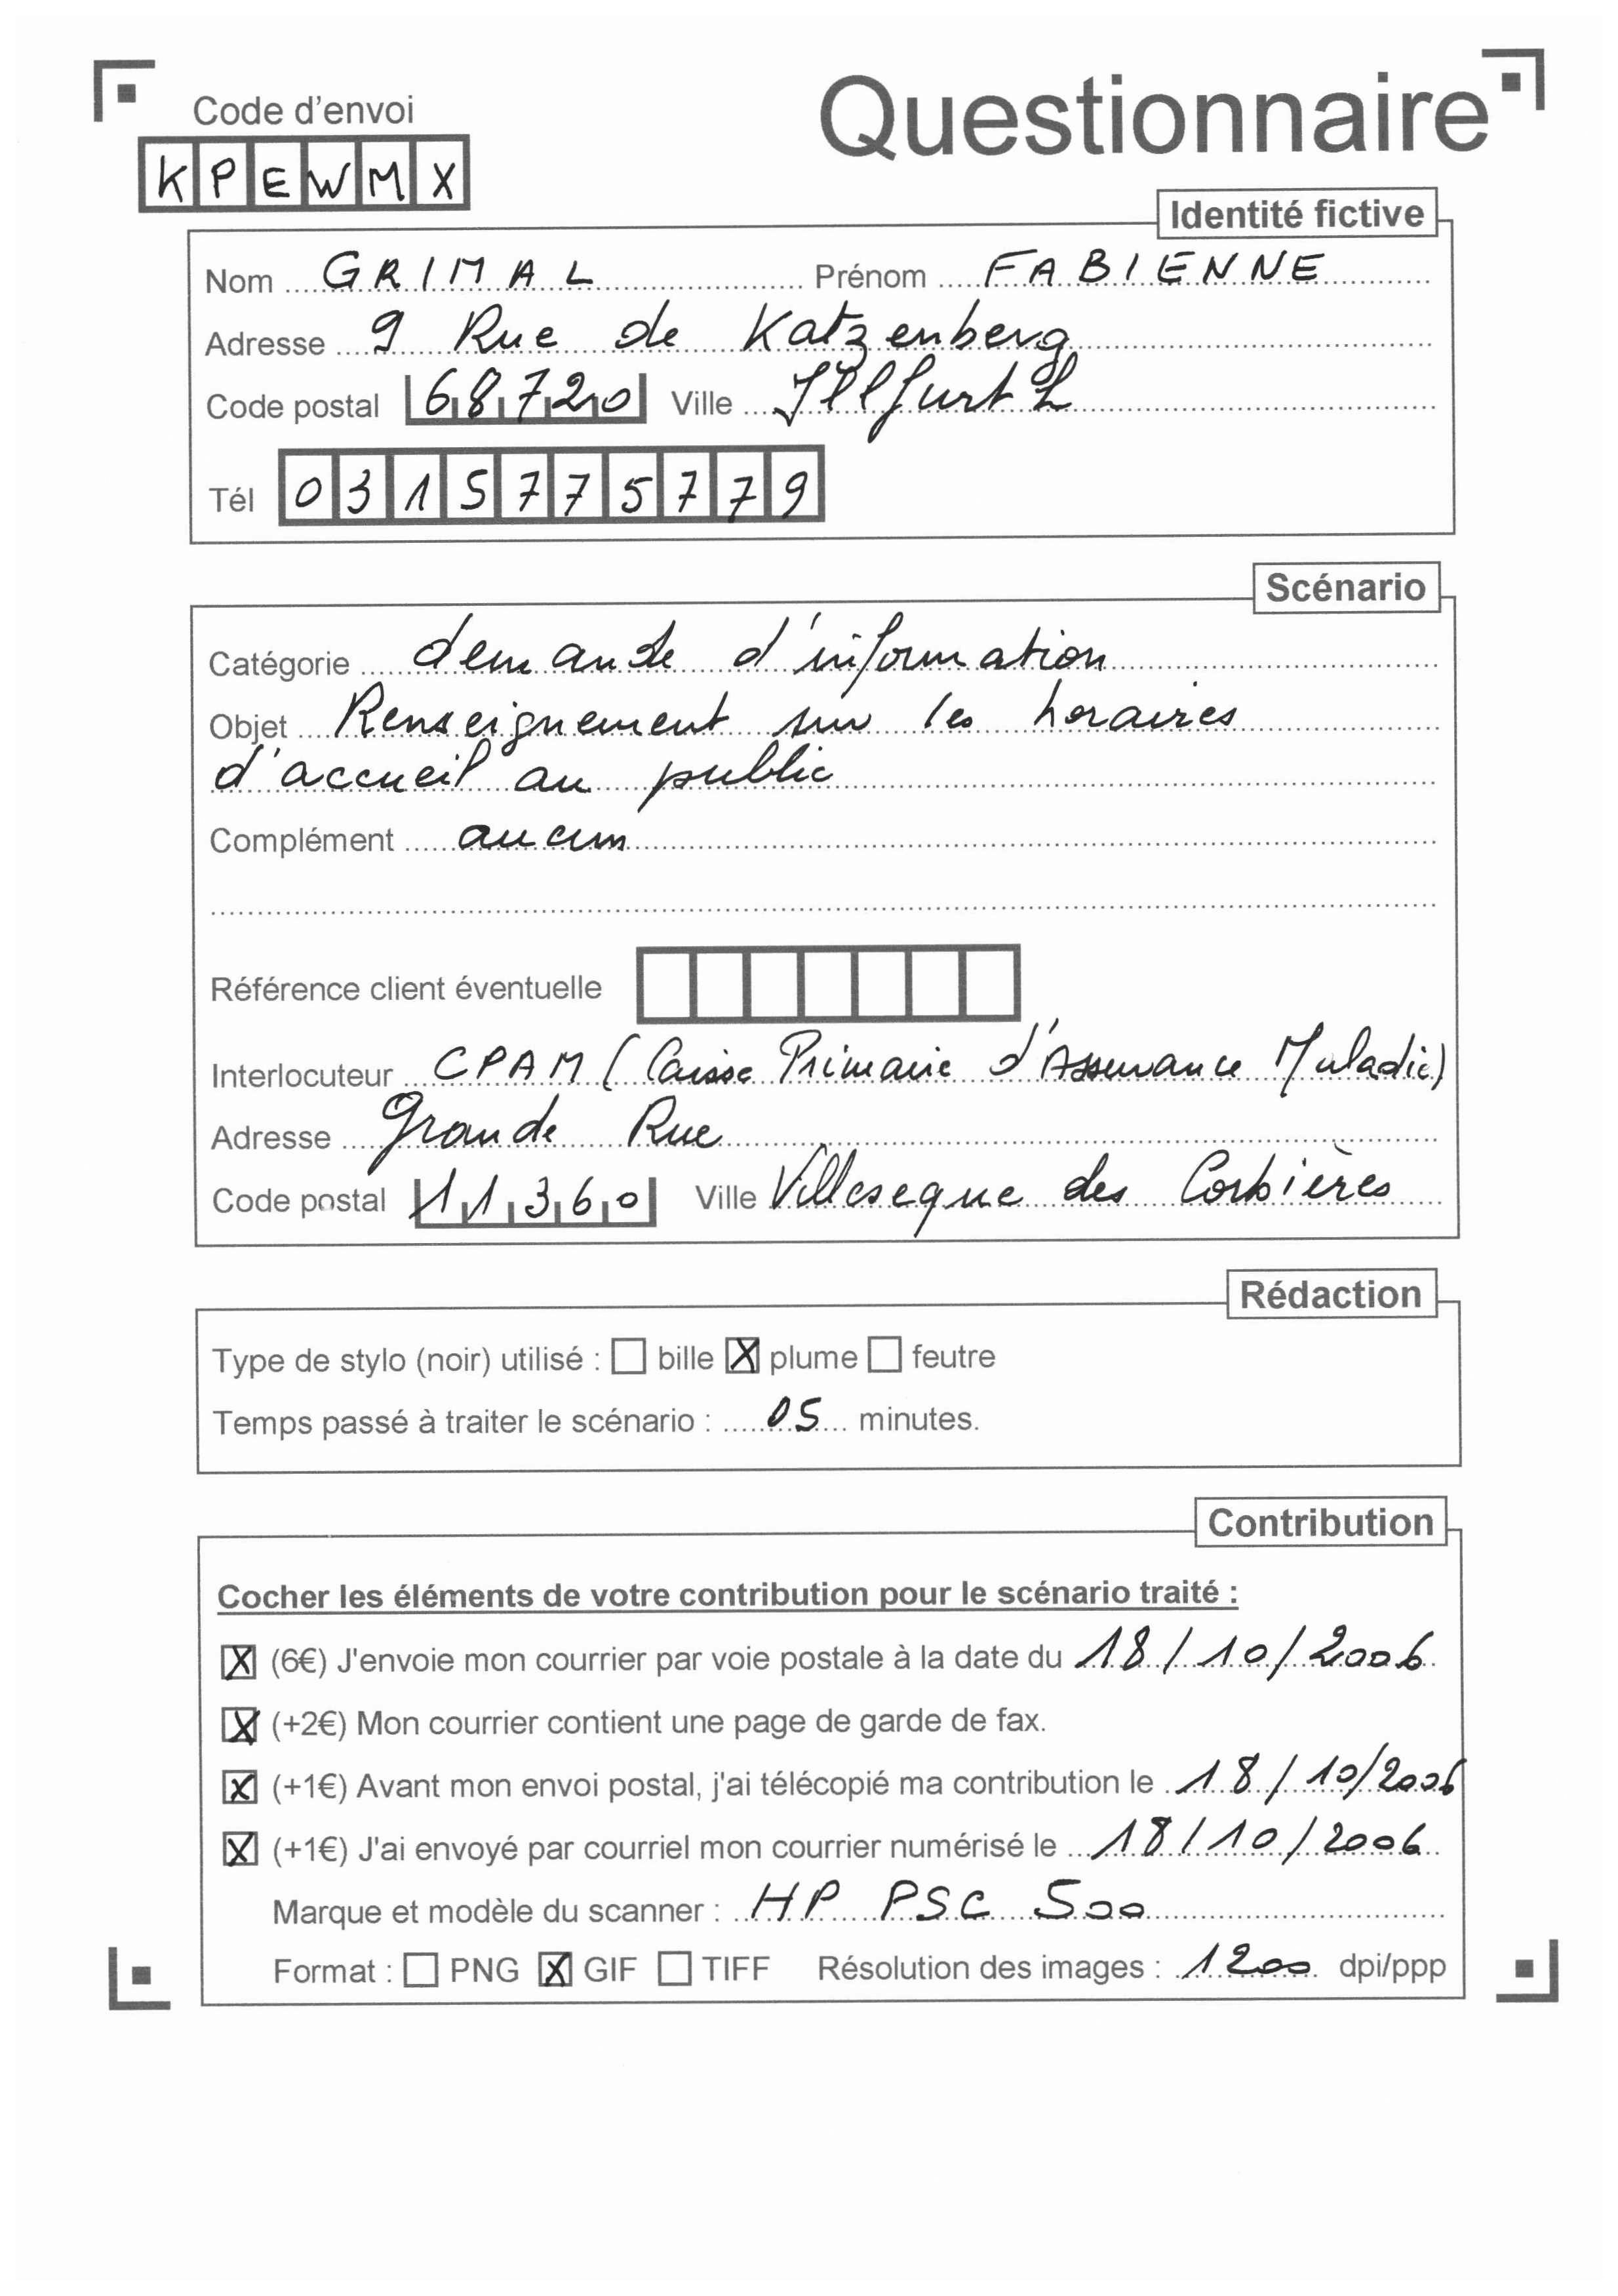 Code d'envoi
Questionnaire
KPEWMX
Identité fictive
Nom GRIMAL Prénom FABIENNE
Adresse 9 Rue de Katzenberg
Code postal 68720 Ville Illfurth
Tél 0315775779
Scénario
Catégorie demande d'information
Objet Renseignement sur les horaires
d'accueil au public
Complément aucun
Référence client éventuelle
Interlocuteur CPAM (Caisse Primaire d'Assurance Maladie)
Adresse Grande Rue
Code postal 11360 Ville Villeseque des Corbières
Rédaction
Type de stylo (noir) utilisé : ☐ bille ☒ plume ☐ feutre
Temps passé à traiter le scénario : 05 minutes.
Contribution
Cocher les éléments de votre contribution pour le scénario traité :
☒ (6€) J'envoie mon courrier par voie postale à la date du 18/10/2006
☒ (+2€) Mon courrier contient une page de garde de fax.
☒ (+1€) Avant mon envoi postal, j'ai télécopié ma contribution le 18/10/2006
☒ (+1€) J'ai envoyé par courriel mon courrier numérisé le 18/10/2006
Marque et modèle du scanner : HP PSC 500
Format : ☐ PNG ☒ GIF ☐ TIFF Résolution des images : 1200 dpi/ppp